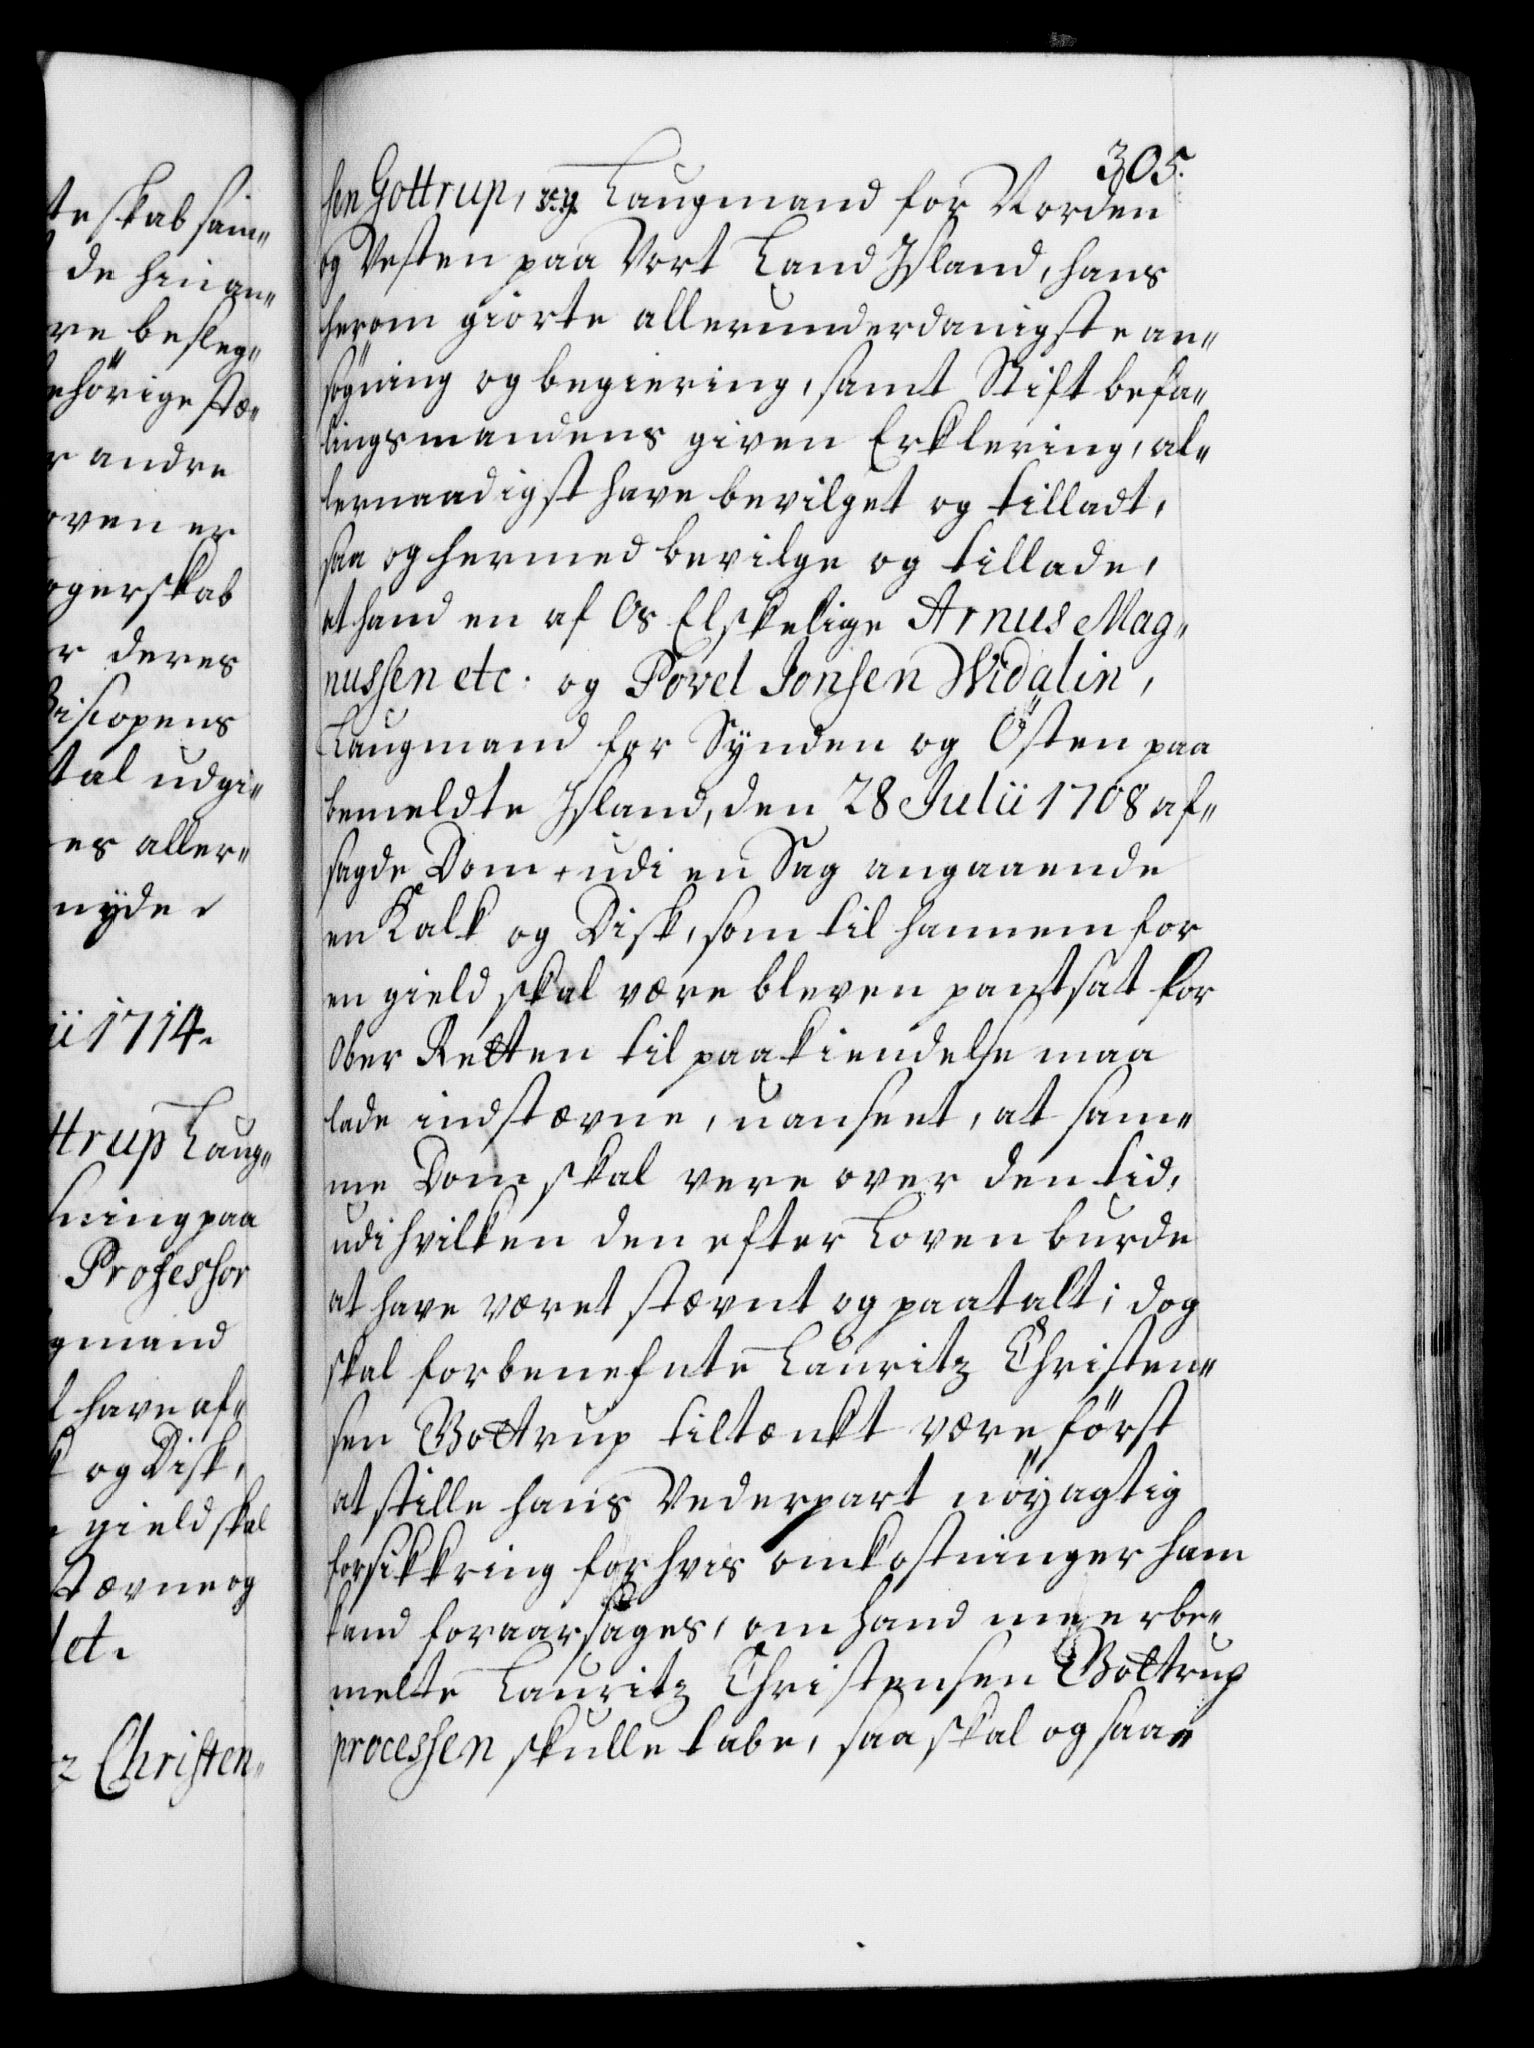 te skab sam„
de hinan„
re besleg„
ehörige stæ„
r andre
oven er
ogerskab
r deres
Biscopens
tal udgi„
es aller„
nyde
ii 1714.
ttrup Laug„
sning paa
Professor
gmand
l have af„
k og Disk,
gield skal
stævne og
let.
z Christen„
305.
sen Gottrup, Laugmand for Norden
og Vesten paa Vort Land Jsland, hans
herom giorte allerunderdanigste an„
søgning og begiering, samt Stiftbefa„
lingsmandens given Erklering, al„
lernaadigst have bevilget og tilladt,
saa og hermed bevilge og tillade,
at hand en af Os Elskelige Arnus Mag„
nussen etc. og Povel Jonsen Widalin,
Laugmand for Synden og Östen paa
bemeldte Jsland, den 28 Julii 1708 af„
sagde Dom udi en Sag angaaende
en Kalk og Disk, som til hannem for
en gield skal være bleven pantsat for
Ober Retten til paakiendelse maa
lade indstævne, uanseet, at sam„
me Dom skal vere over den tid,
udi hvilken den efter Loven burde
at have været stævnt og paatalt; dog
skal forbenefnte Lauritz Christen„
sen Gottrup tiltænkt være, först
at stille hans Vederpart nöyagtig
forsikkring for hvis omkostninger ham
kand foraarsages, om hand meerbe„
melte Lauritz Christensen Gottrup
processen skulle tabe, saa skal og saa„